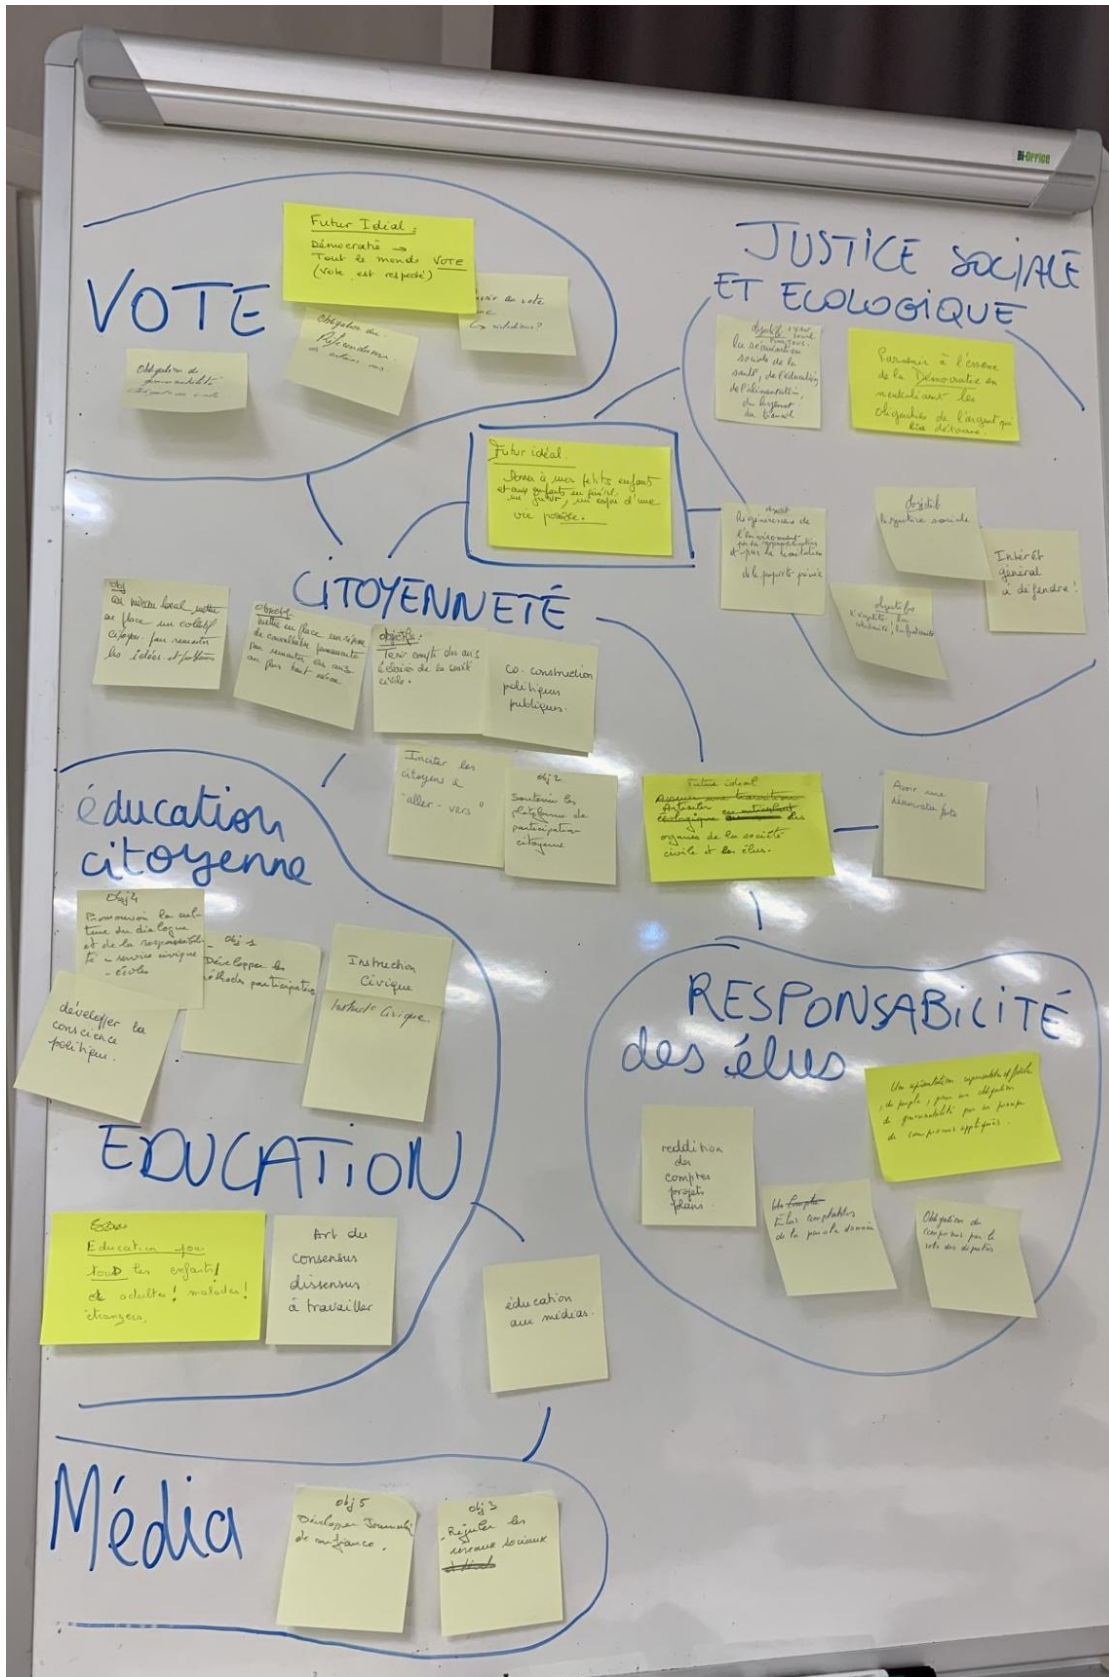 Bi-OFFICE
VOTE
Futur Idéal :
Démocratie →
Tout le monde VOTE
(Vote est respecté)
au vote
Obligation de
Obligation de
JUSTICE SOCIALE
ET ECOLOGIQUE
objectif
la sécurisation
sociale de la
santé, de l'éducation,
de l'alimentation,
du logement
du travail
Parvenir à l'essence
de la Démocratie en
neutralisant les
oligarchies de l'argent qui
Futur idéal.
Donner à mes petits enfants
et aux enfants en général
un futur, un espoir d'une
vie possible.
objectif
Régénérescence de
l'environnement
et par la limitation
de la propriété privée
objectif
la justice sociale
Intérêt
général
à défendre !
objectifs
solidarité, la fraternité
CITOYENNETÉ
obj
au niveau local, mettre
en place un collectif
citoyen pour remonter
les idées et problèmes
objectif
mettre en place un
de consultation permanente
pour remonter les avis
au plus haut niveau
objectifs :
Tenir compte des avis
éclairés de la société
civile.
co-construction
politiques
publiques.
Inciter les
citoyens à
"aller-vers"
obj 2
Soutenir les
plateformes de
participation
citoyenne
Futur idéal
écologique les
organes de la société
civile et les élus.
Avoir une
démocratie forte
éducation
citoyenne
Obj 4
Promouvoir la cul-
ture du dialogue
et de la responsabili-
té - service civique
- écoles
- Obj 1
Développer les
méthodes participatives
Instruction
Civique
Civique.
développer la
conscience
politique.
EDUCATION
Education pour
tous les enfants!
et adultes! malades!
étrangers.
Art du
consensus
dissensus
à travailler
éducation
aux médias.
RESPONSABILITÉ
des élus
Une représentation responsable et fidèle
du peuple, pour une obligation
reddition
des
comptes
projets
plans.
Elus comptables
de la parole donnée
Obligation de
compromis par le
vote des députés
Média
obj 5
Développer
de confiance.
obj 3
- Réguler les
réseaux sociaux